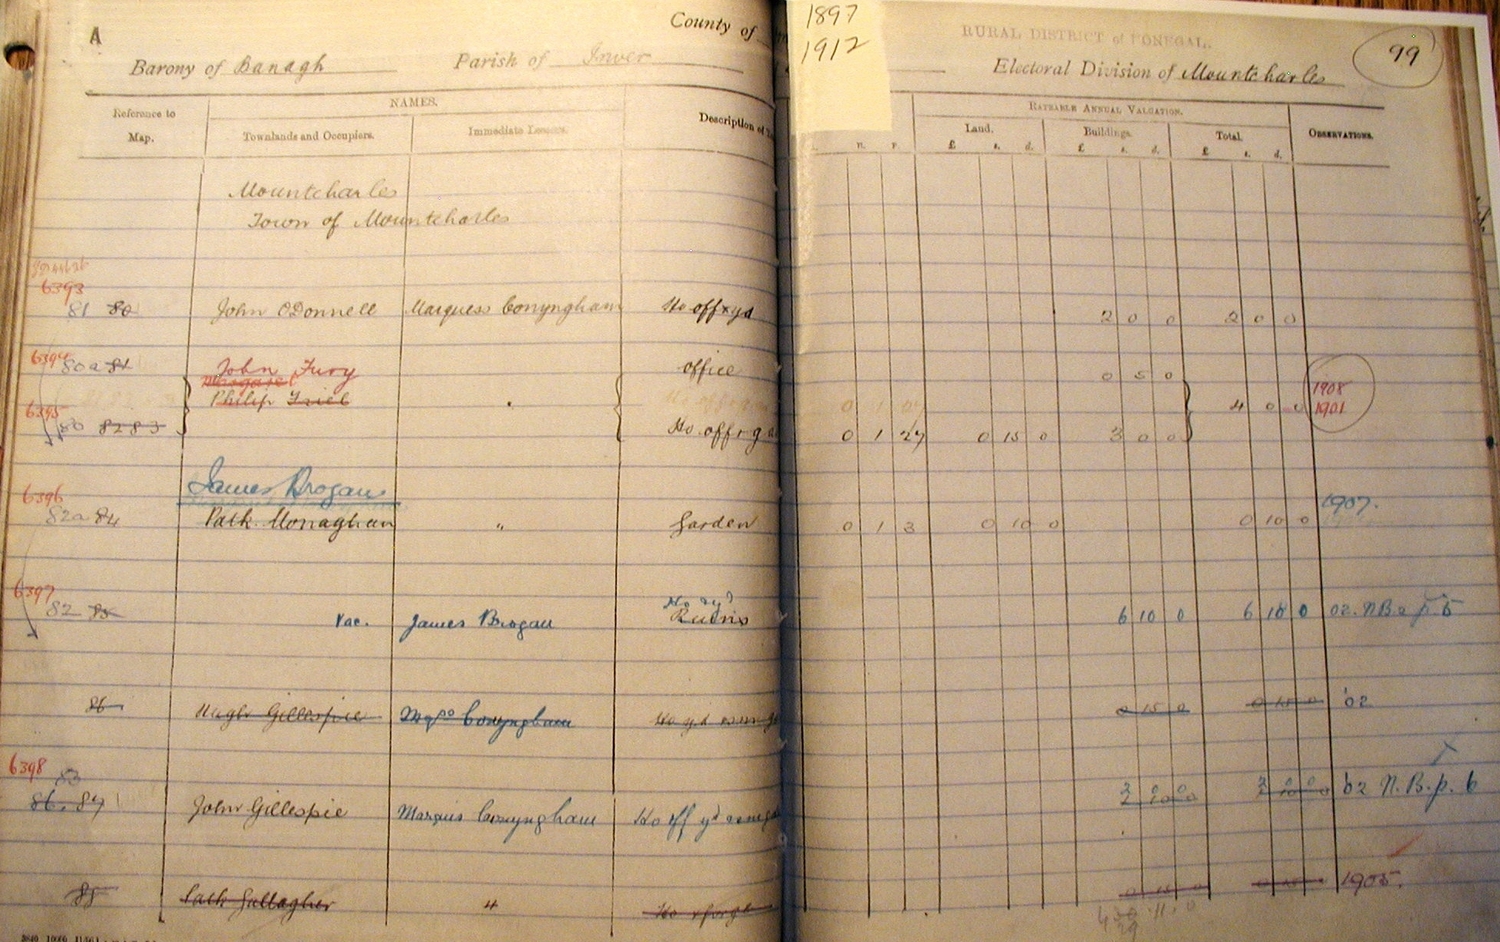 A
County of
1897
1912
RURAL DISTRICT of DONEGAL.
99
Barony of Banagh
Parish of Inver
Electoral Division of Mountcharles
Reference to
Map.
NAMES.
Townlands and Occupiers.
Immediate Lessors.
Description of
RATEABLE ANNUAL VALUATION.
Land.
Buildings.
Total.
OBSERVATIONS.
R. P.
£ s. d.
£ s. d.
£ s. d.
Mountcharles
Town of Mountcharles
6393
81 80 John O'Donnell Marquess Conyngham Ho off & yd 2 0 0 2 0 0
6394 80a 81 John Fury office 0 5 0
Margaret 1908
Philip Friel 4 0 0 1901
6395 82 83 Ho off & g 0 1 27 0 15 0 3 0 0
James Brogan
6396
82a 84 Patk Monaghan " Garden 0 1 3 0 10 0 0 10 0 1907.
6397
82 85 Vac. James Brogan Ho & yd Ruins 6 10 0 6 10 0 02. N.B. p. 5
86 Hugh Gillespie Mqss Conyngham Ho yd 0 15 0 0 15 0 '02
6398
83
86. 87 John Gillespie Marquis Conyngham Ho off yd 2 0 0 '02 N.B. p. 6
88 Patk Gallagher " Ho & forge 0 15 0 0 15 0 1905.